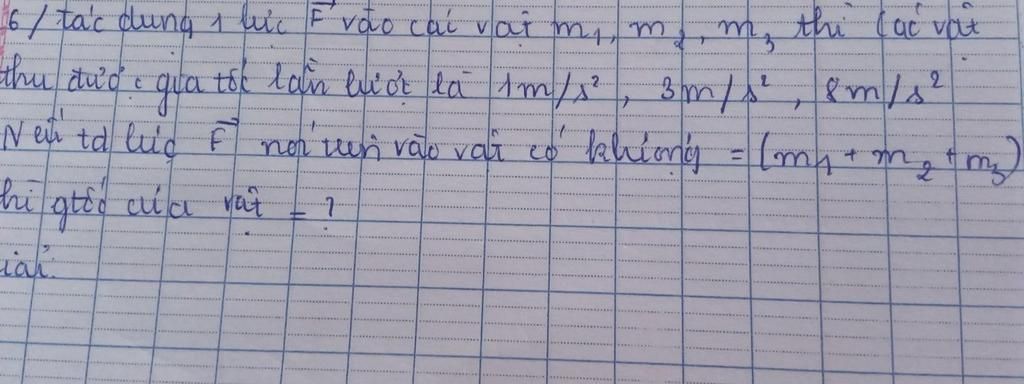 6/ tác dụng 1 lực F vào các vật m1, m2, m3 thì các vật
thu được gia tốc lần lượt là 1m/s², 3m/s², 8m/s²
Nếu td lực F nói trên vào vật có khlượng = (m1 + m2 + m3)
hì gtốc của vật = ?
iải.